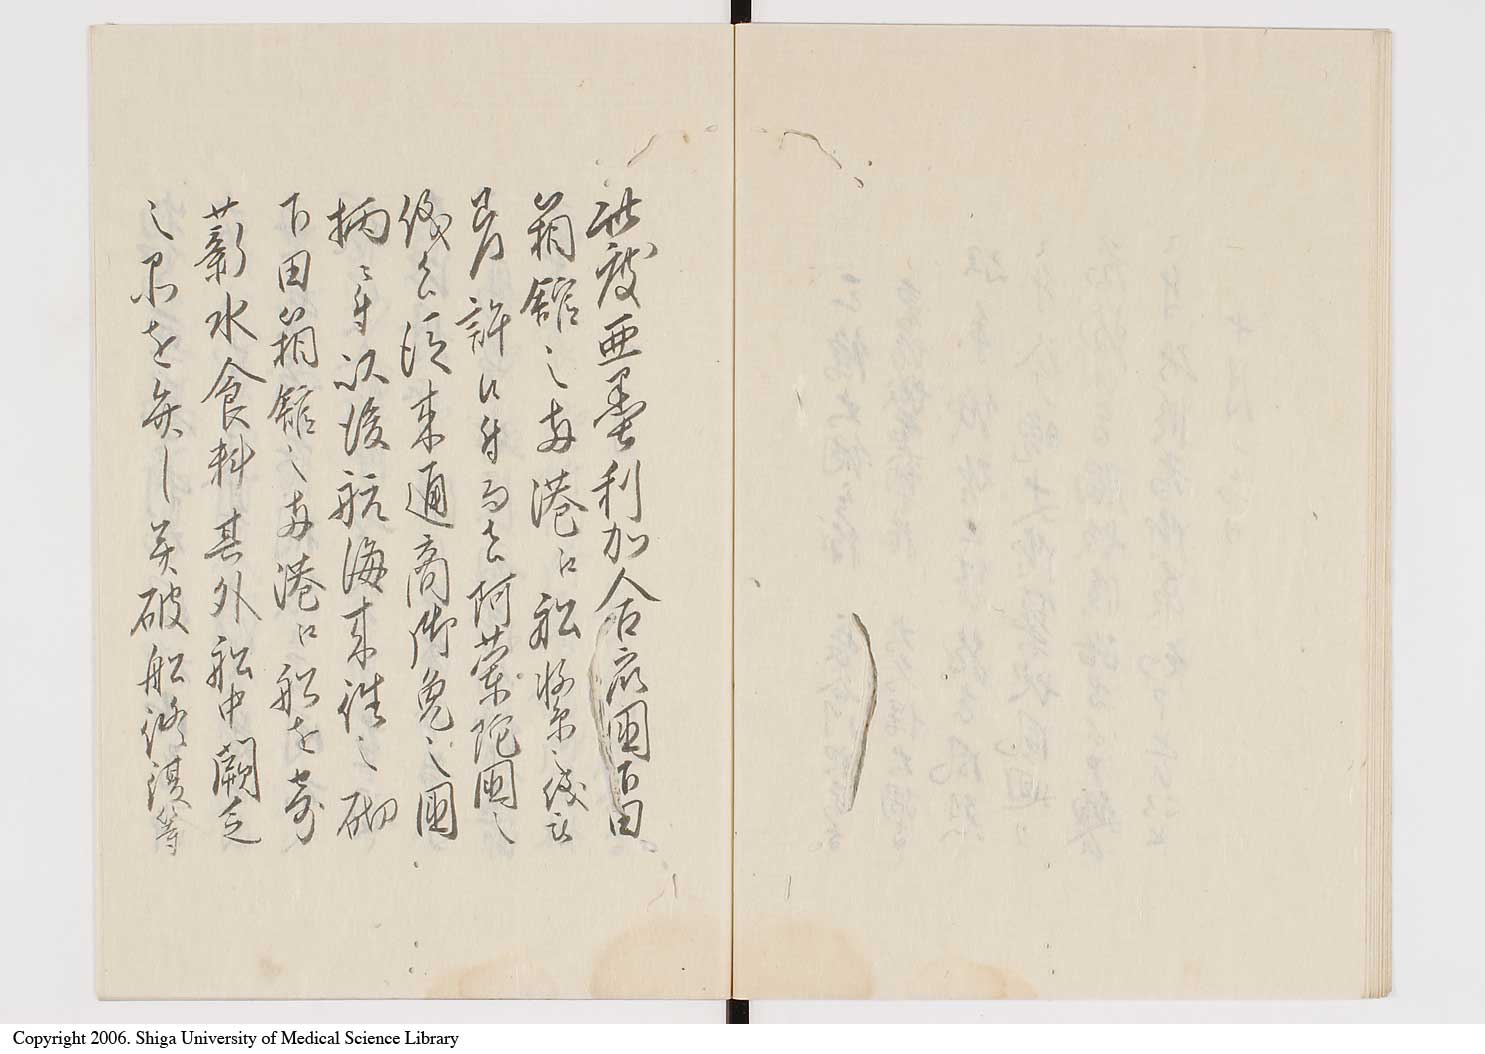 此度亜墨利加合衆國下田
箱館之両港江船繋之儀被
差許候付而者阿蘭陀國之
儀者従来通商御免之國
柄ニ付以後航海来往之砌
下田箱館之両港江船を寄
薪水食料其外船中闕乏
之品を弁し又破船修理等
Copyright 2006. Shiga University of Medical Science Library